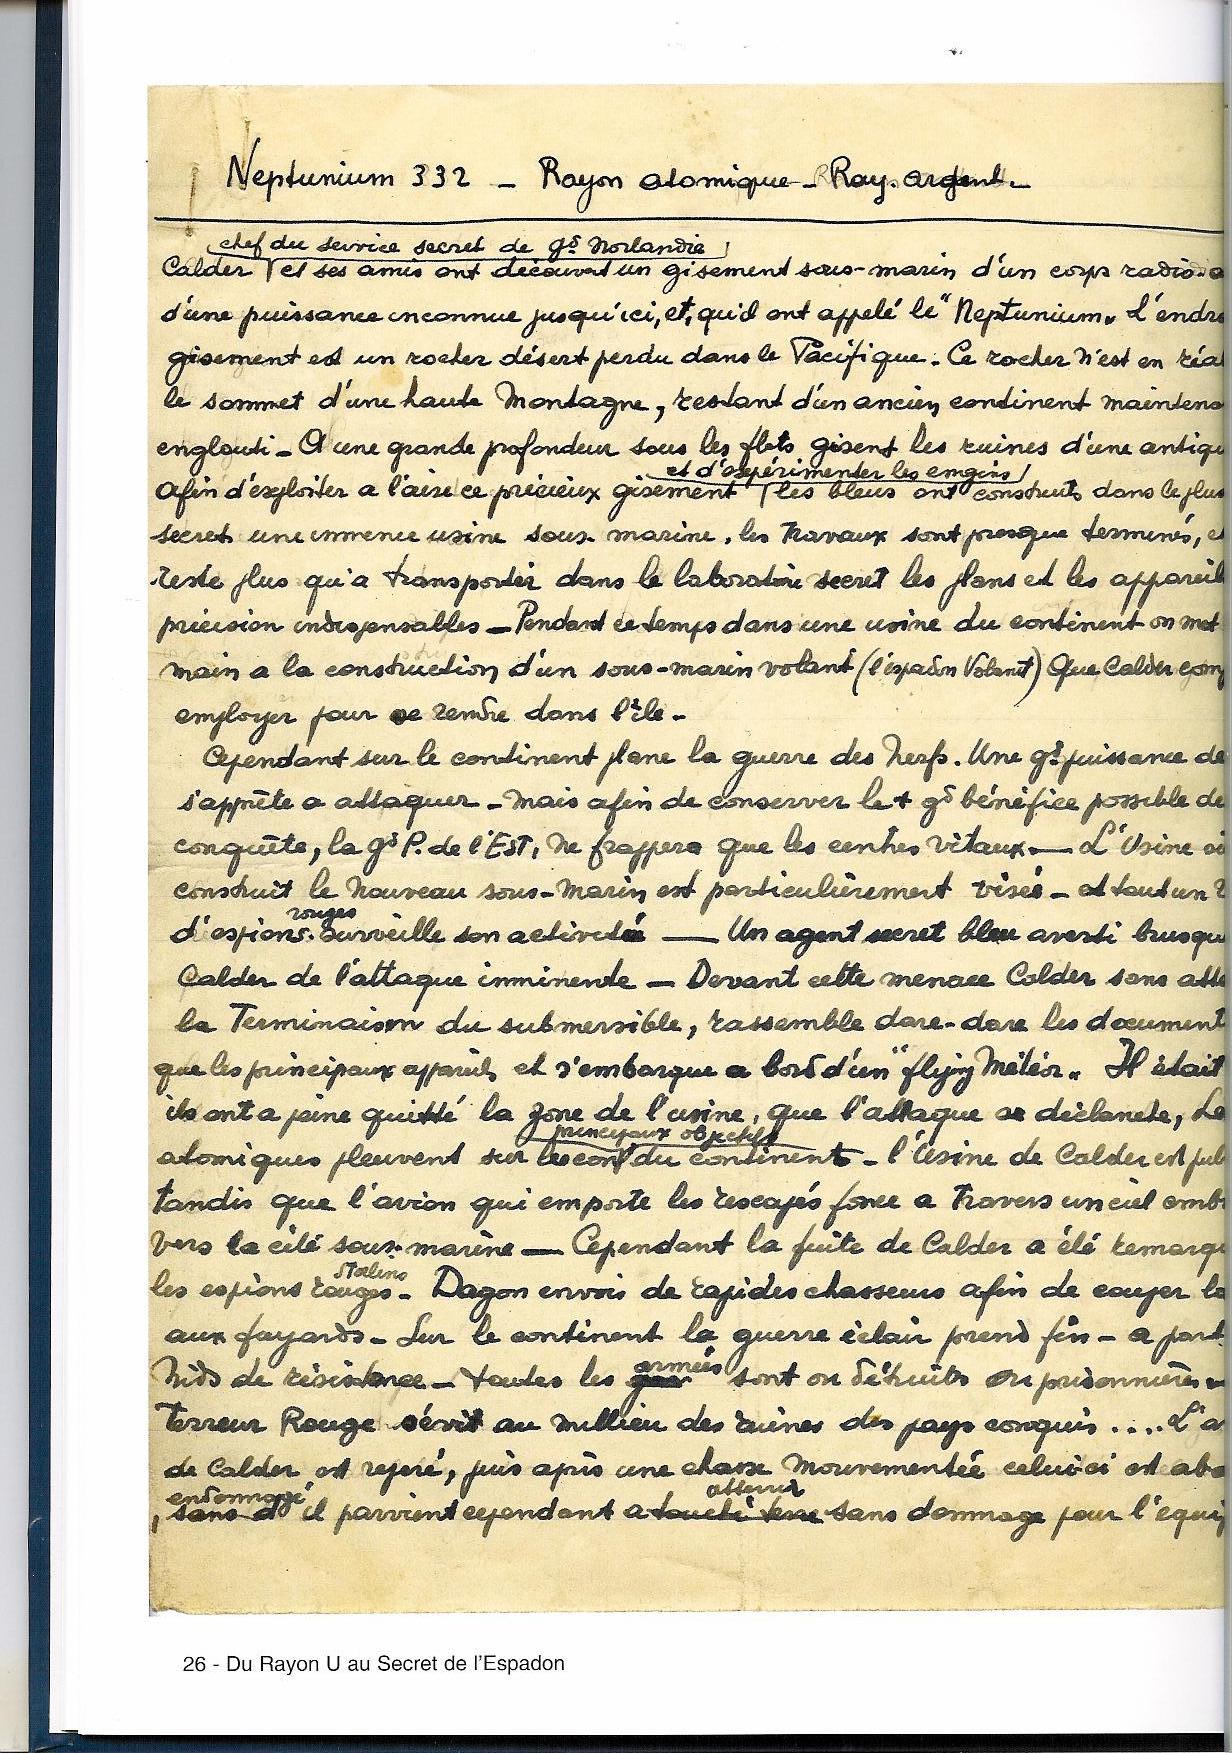 Neptunium 332 - Rayon atomique - Ray. argent.
chef du service secret de gde Norlandie
Calder et ses amis ont découvert un gisement sous-marin d'un corps radio-a
d'une puissance inconnue jusqu'ici, et, qu'il ont appelé le "Neptunium". L'endro
gisement est un rocher désert perdu dans le Pacifique. Ce rocher n'est en réal
le sommet d'une haute Montagne, restant d'un ancien continent maintena
englouti - A une grande profondeur sous les flots gisent les ruines d'une antiqu
et d'expérimenter les engins
Afin d'exploiter a l'aise ce précieux gisement les bleus ont construits dans le plus
secret une immence usine sous-marine. les Travaux sont presque terminés, e
reste plus qu'a transporter dans le laboratoire secret les plans et les appareil
précision indispensables - Pendant ce temps dans une usine du continent on met
main a la construction d'un sous-marin volant (l'espadon Volant) Que Calder comp
employer pour se rendre dans l'île -
Cependant sur le continent plane la guerre des Nerfs. Une gde puissance de
s'apprête a attaquer - Mais afin de conserver le + gd bénéfice possible de
conquête, la gde P. de l'EST, Ne frappera que les centres vitaux — L'Usine où
construit le nouveau sous-marin est particulièrement visée - et tout un
rouges
d'espions surveille son activité — Un agent secret bleu averti brusqu
Calder de l'attaque imminente — Devant cette menace Calder sans atte
la Terminaison du submersible, rassemble dare-dare les document
que les principaux appareils et s'embarque a bord d'un "flying Météor". Il était
ils ont a peine quitté la zone de l'usine, que l'attaque se déclanche, Le
principaux objectifs
atomiques pleuvent sur du continent - l'Usine de Calder est pul
tandis que l'avion qui emporte les rescapés fonce a travers un ciel emb
vers la cité sous-marine — Cependant la fuite de Calder a été remarqu
Stalino
les espions rouges - Dagon envois de rapides chasseurs afin de couper la
aux fuyards - Sur le continent la guerre éclair prend fin - a part
armées
Nids de résistance - toutes les sont ou détruits ou prisonnières
Terreur Rouge sévit au millieu des ruines des pays conquis .... L'a
de Calder est repéré, puis après une chasse mouvementée celui-ci est aba
endommagé
atterrir
sans d il parvient cependant a touché terre sans dommage pour l'équip
26 - Du Rayon U au Secret de l'Espadon